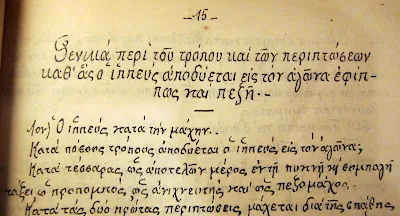 —15—
Γενικά περί του τρόπου και των περιπτώσεων
καθ' ἅς ὁ ἱππεύς ἀποδύεται εἰς τόν ἀγῶνα ἐφίπ-
πως και πεζῇ.-
1ον) Ὁ ἱππεύς κατά την μάχην.
Κατά πόσους τρόπους ἀποδύεται ὁ ἱππεύς εἰς τόν ἀγῶνα;
Κατά τέσσαρας, ὡς ἀποτελῶν μέρος ἐν τῇ πυκνῇ ἤ συμπαγῇ
τάξει ὡς προπομπός, ὡς ἀνιχνευτής και ὡς πεζομάχος.
Κατά τάς δύο πρώτας περιπτώσεις μάχεται διά της σπάθης